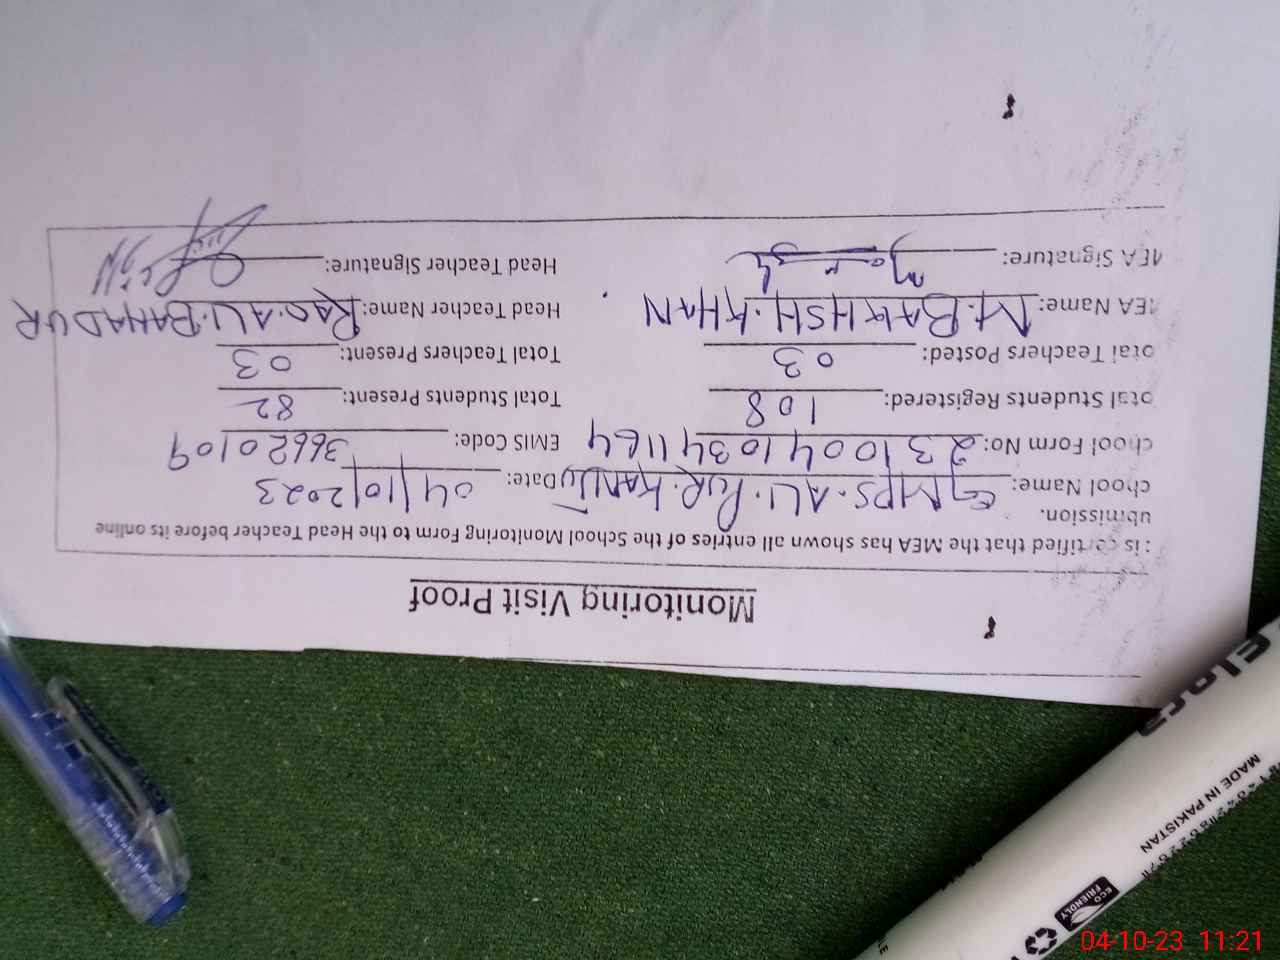 Monitoring Visit Proof
: is certified that the MEA has shown all entries of the School Monitoring Form to the Head Teacher before its online
ubmission.
chool Name: GMPS. ALI. PUR. KANJU Date: 04/10/2023
chool Form No: 2310041034 1164 EMIS Code: 36620109
otal Students Registered: 108 Total Students Present: 82
otal Teachers Posted: 03 Total Teachers Present: 03
MEA Name: M. BAKHSH. KHAN Head Teacher Name: RAO. ALI. BAHADUR
MEA Signature: Head Teacher Signature:
MADE IN PAKISTAN
ECO FRIENDLY
04-10-23 11:21